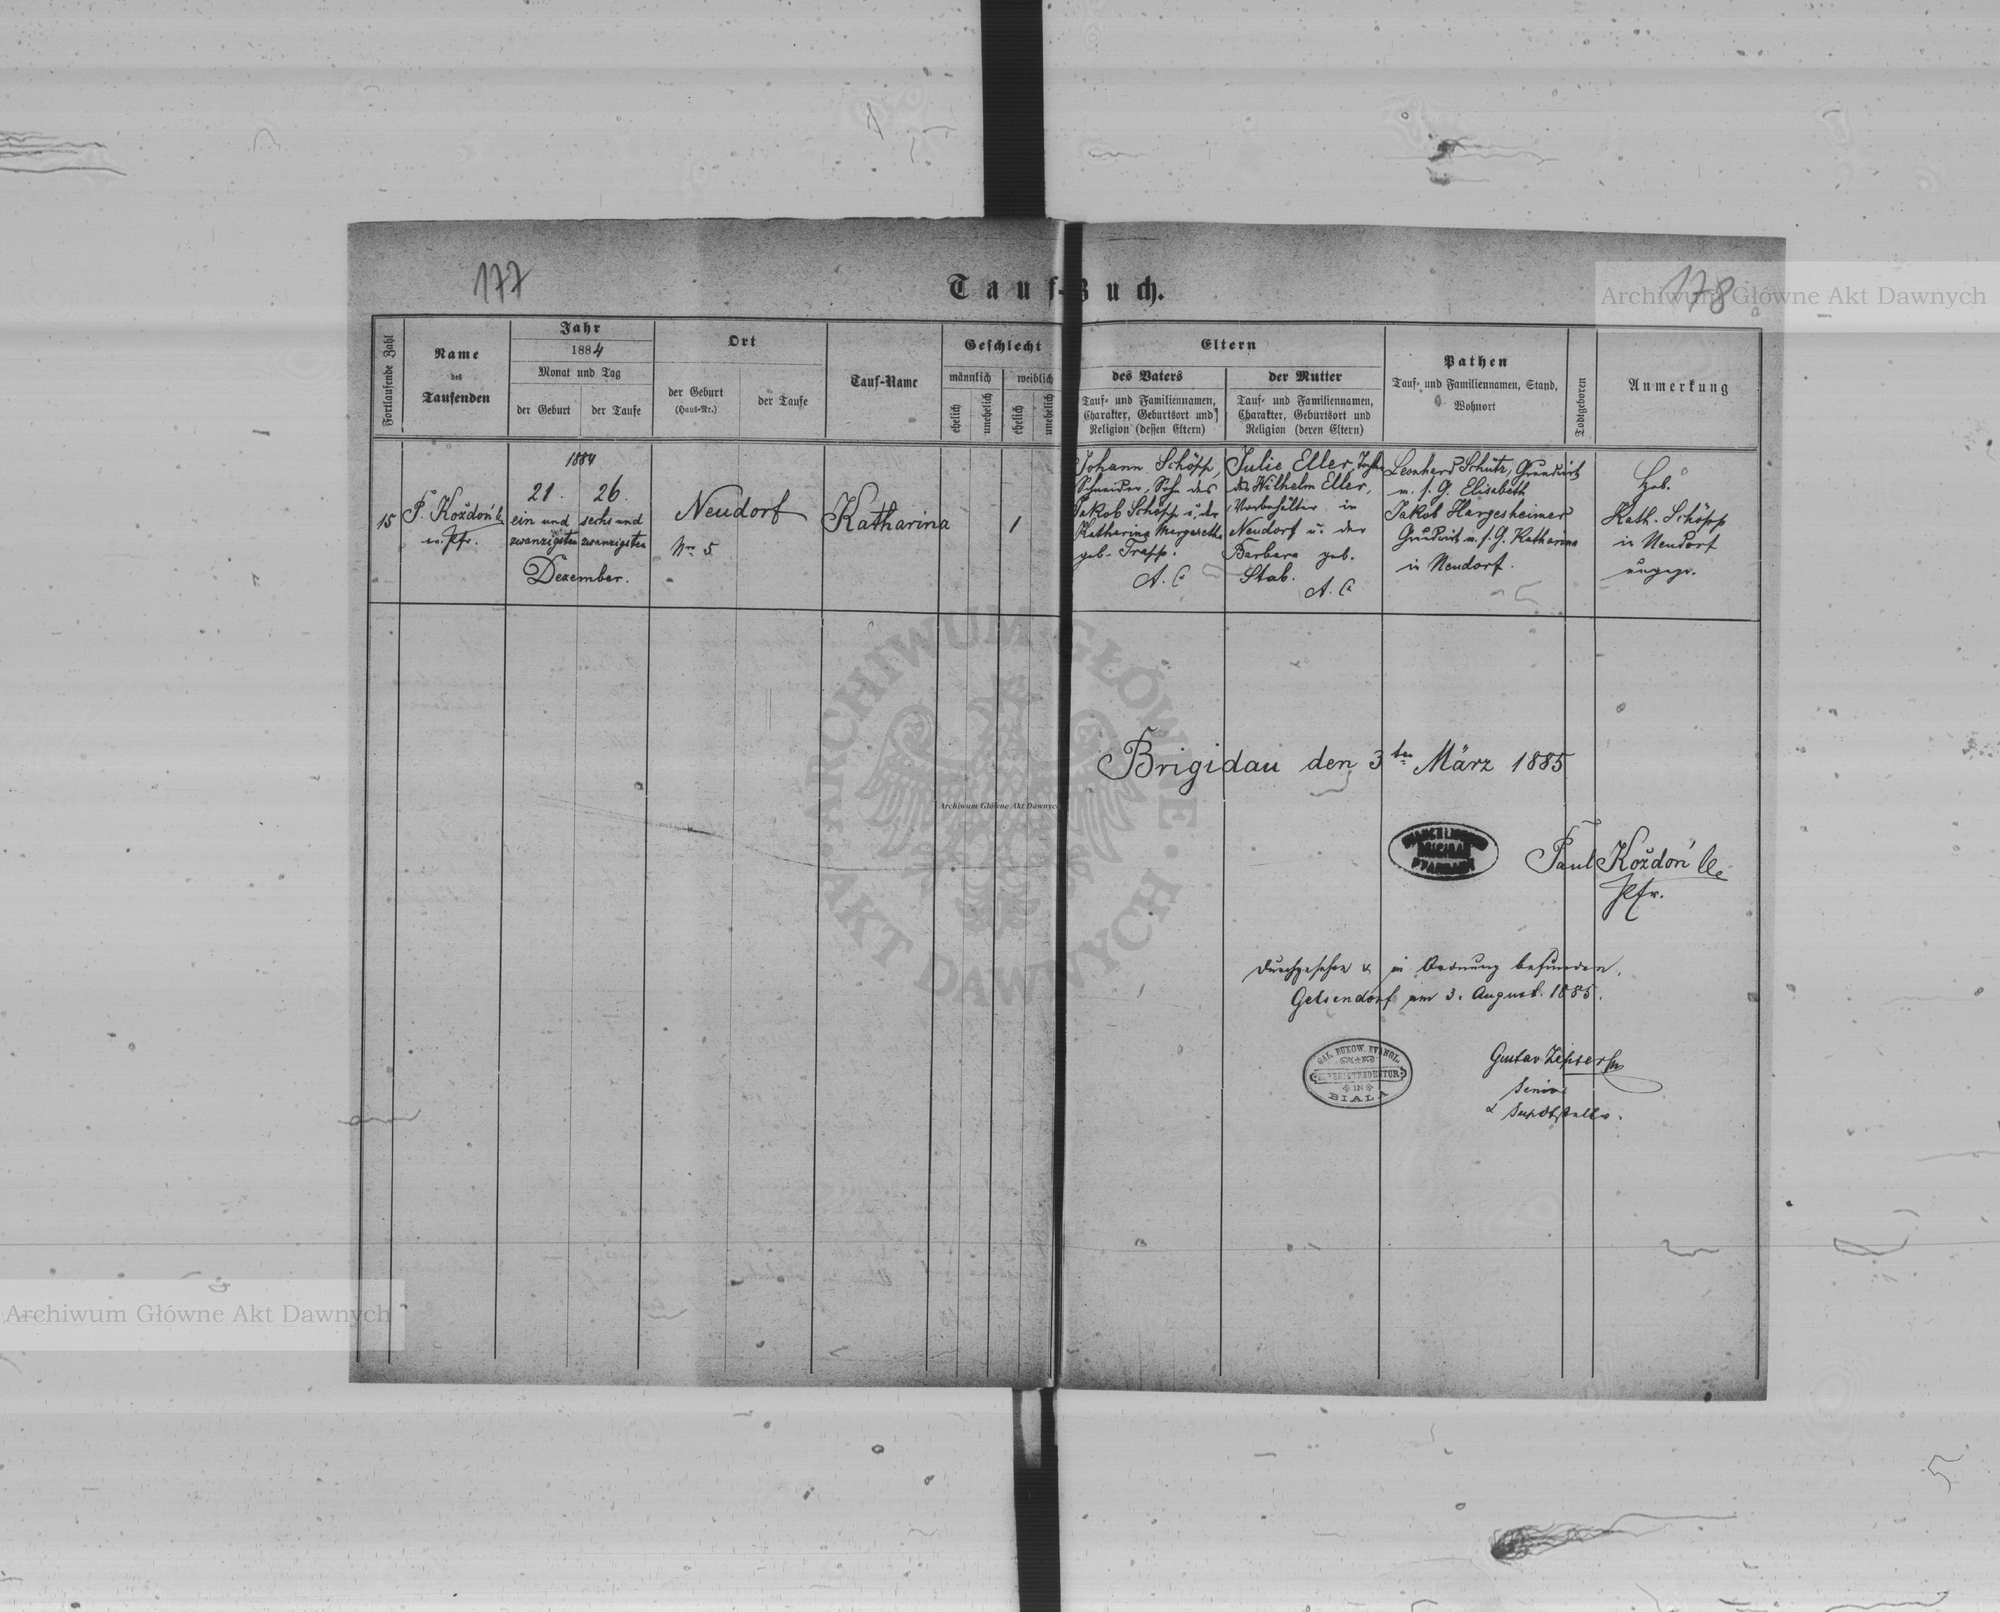 177
178
Tauf-Buch.
Archiwum Główne Akt Dawnych
Fortlaufende Zahl
Name
des
Taufenden
Jahr
1884
Monat und Tag
der Geburt
der Taufe
Ort
der Geburt
(Haus-Nr.)
der Taufe
Tauf-Name
Geschlecht
männlich
weiblich
ehelich
unehelich
ehelich
unehelich
Eltern
des Vaters
Tauf- und Familiennamen,
Charakter, Geburtsort und
Religion (dessen Eltern)
der Mutter
Tauf- und Familiennamen,
Charakter, Geburtsort und
Religion (deren Eltern)
Pathen
Tauf- und Familiennamen, Stand,
Wohnort
Todtgeboren
Anmerkung
15
P. Koždoń
Pfr.
1884
21.
ein und
zwanzigsten
26.
sechs und
zwanzigsten
Dezember.
Neudorf
Nro 5
Katharina
1
Johann Schöpp,
Schneider, Sohn des
Jakob Schöpp u. der
Katharina Margaretha
geb. Trapp.
A. C
Julie Eller, Tochter
des Wilhelm Eller,
Vorbehälter in
Neudorf u. der
Barbara geb.
Stab.
A. C
Leonhard Schütz, Grundwirth
u. s. G. Elisabeth
Jakob Hargesheimer
Grundwirth u. s. G. Katharina
in Neudorf.
Heb.
Kath. Schöpp
in Neudorf
ungepr.
Brigidau den 3ten März 1885
Paul Koždoń
Pfr.
Durchgesehen & in Ordnung befunden.
Gelsendorf am 3. August. 1885.
GAL. BUKOW. EVANGL.
SUPERINTENDENTUR
IN
BIALA
Gustav Zipser
Senior
ARCHIWUM GŁÓWNE AKT DAWNYCH
Archiwum Główne Akt Dawnych
Archiwum Główne Akt Dawnych